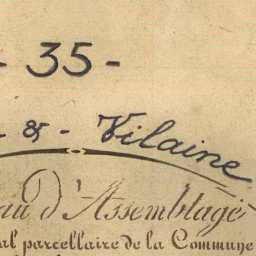 - 35 -
- & - Vilaine
au d'Assemblage
al parcellaire de la Commune